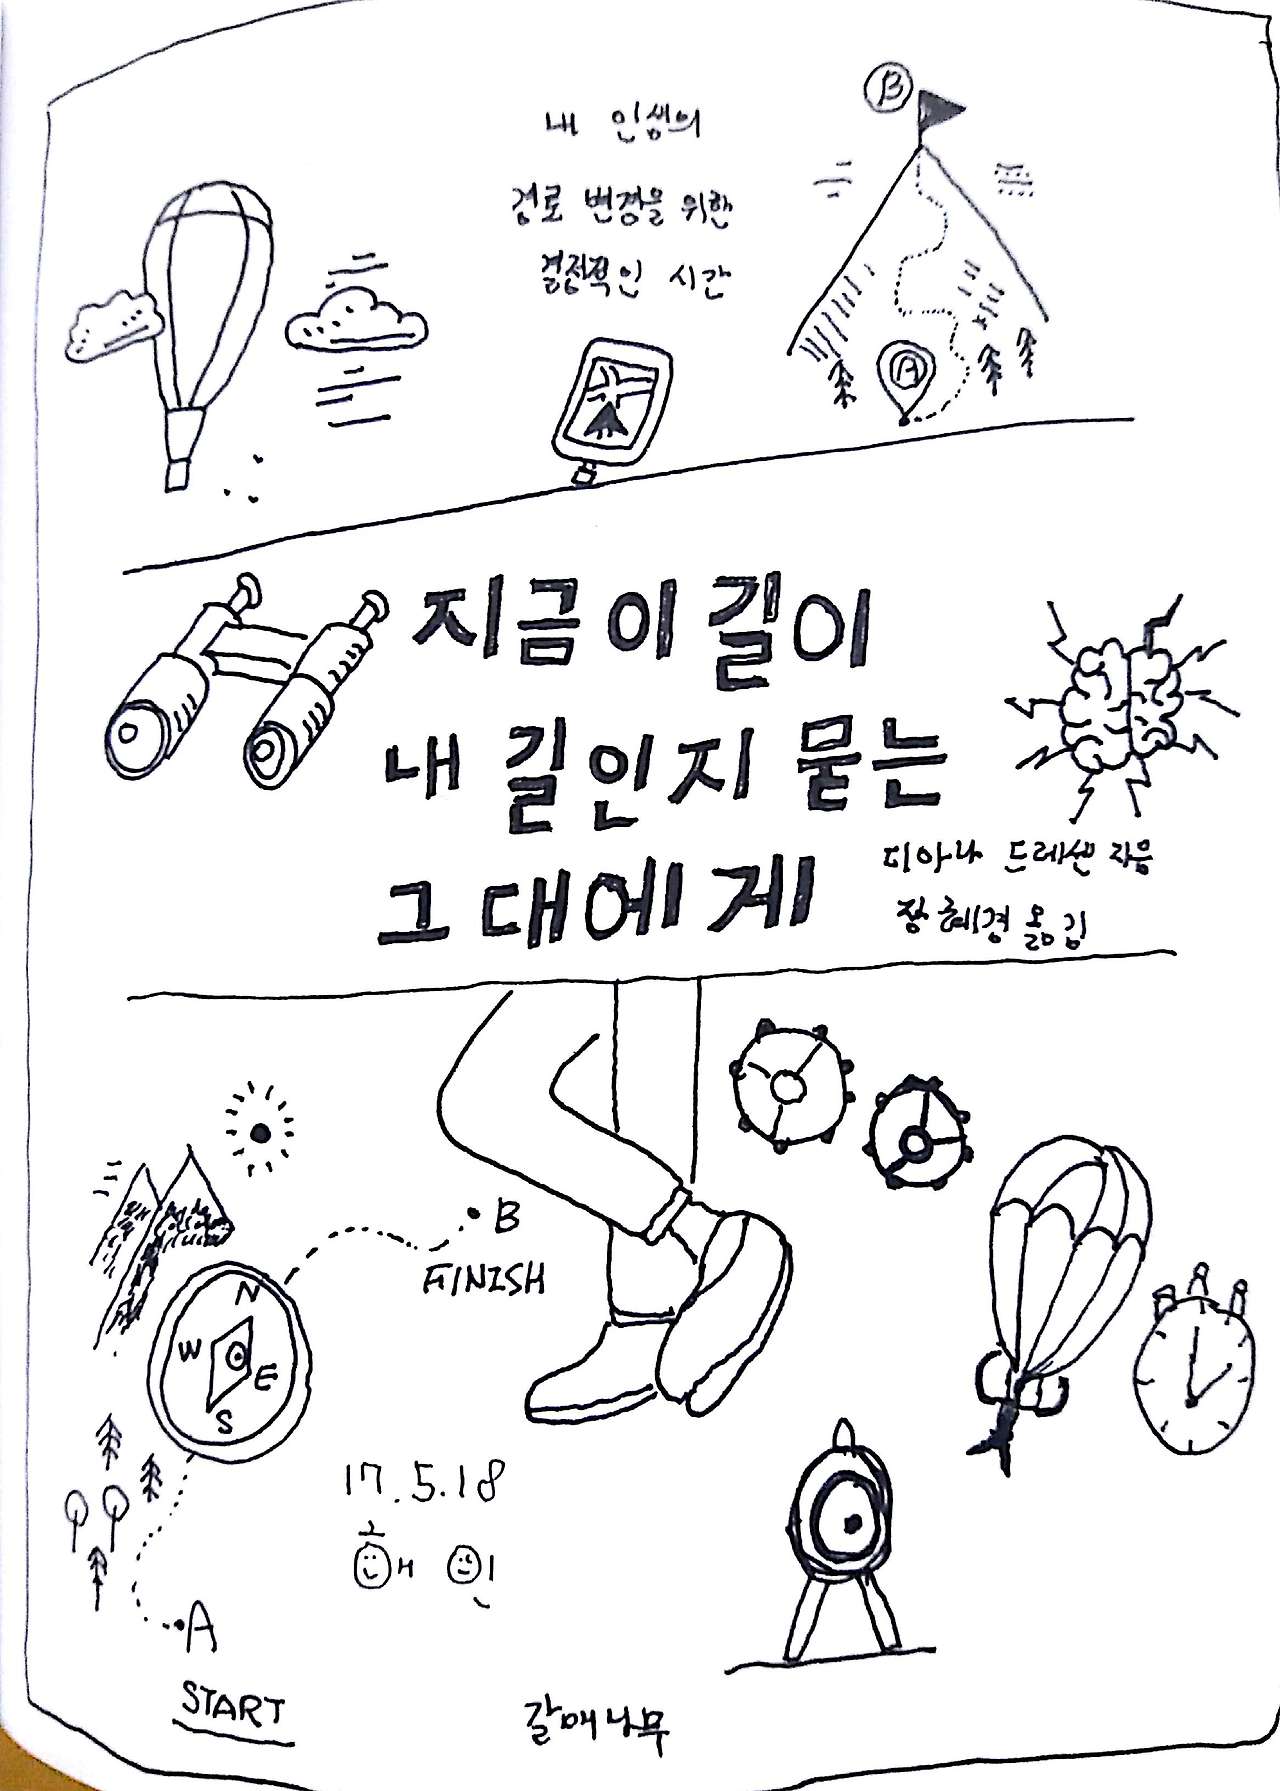 내 인생의
경로 변경을 위한
결정적인 시간
B
A
지금 이 길이
내 길인지 묻는
그대에게
디아나 드레센 지음
장혜경 옮김
B
FINISH
N
W
E
S
17.5.18
해인
A
START
갈매나무